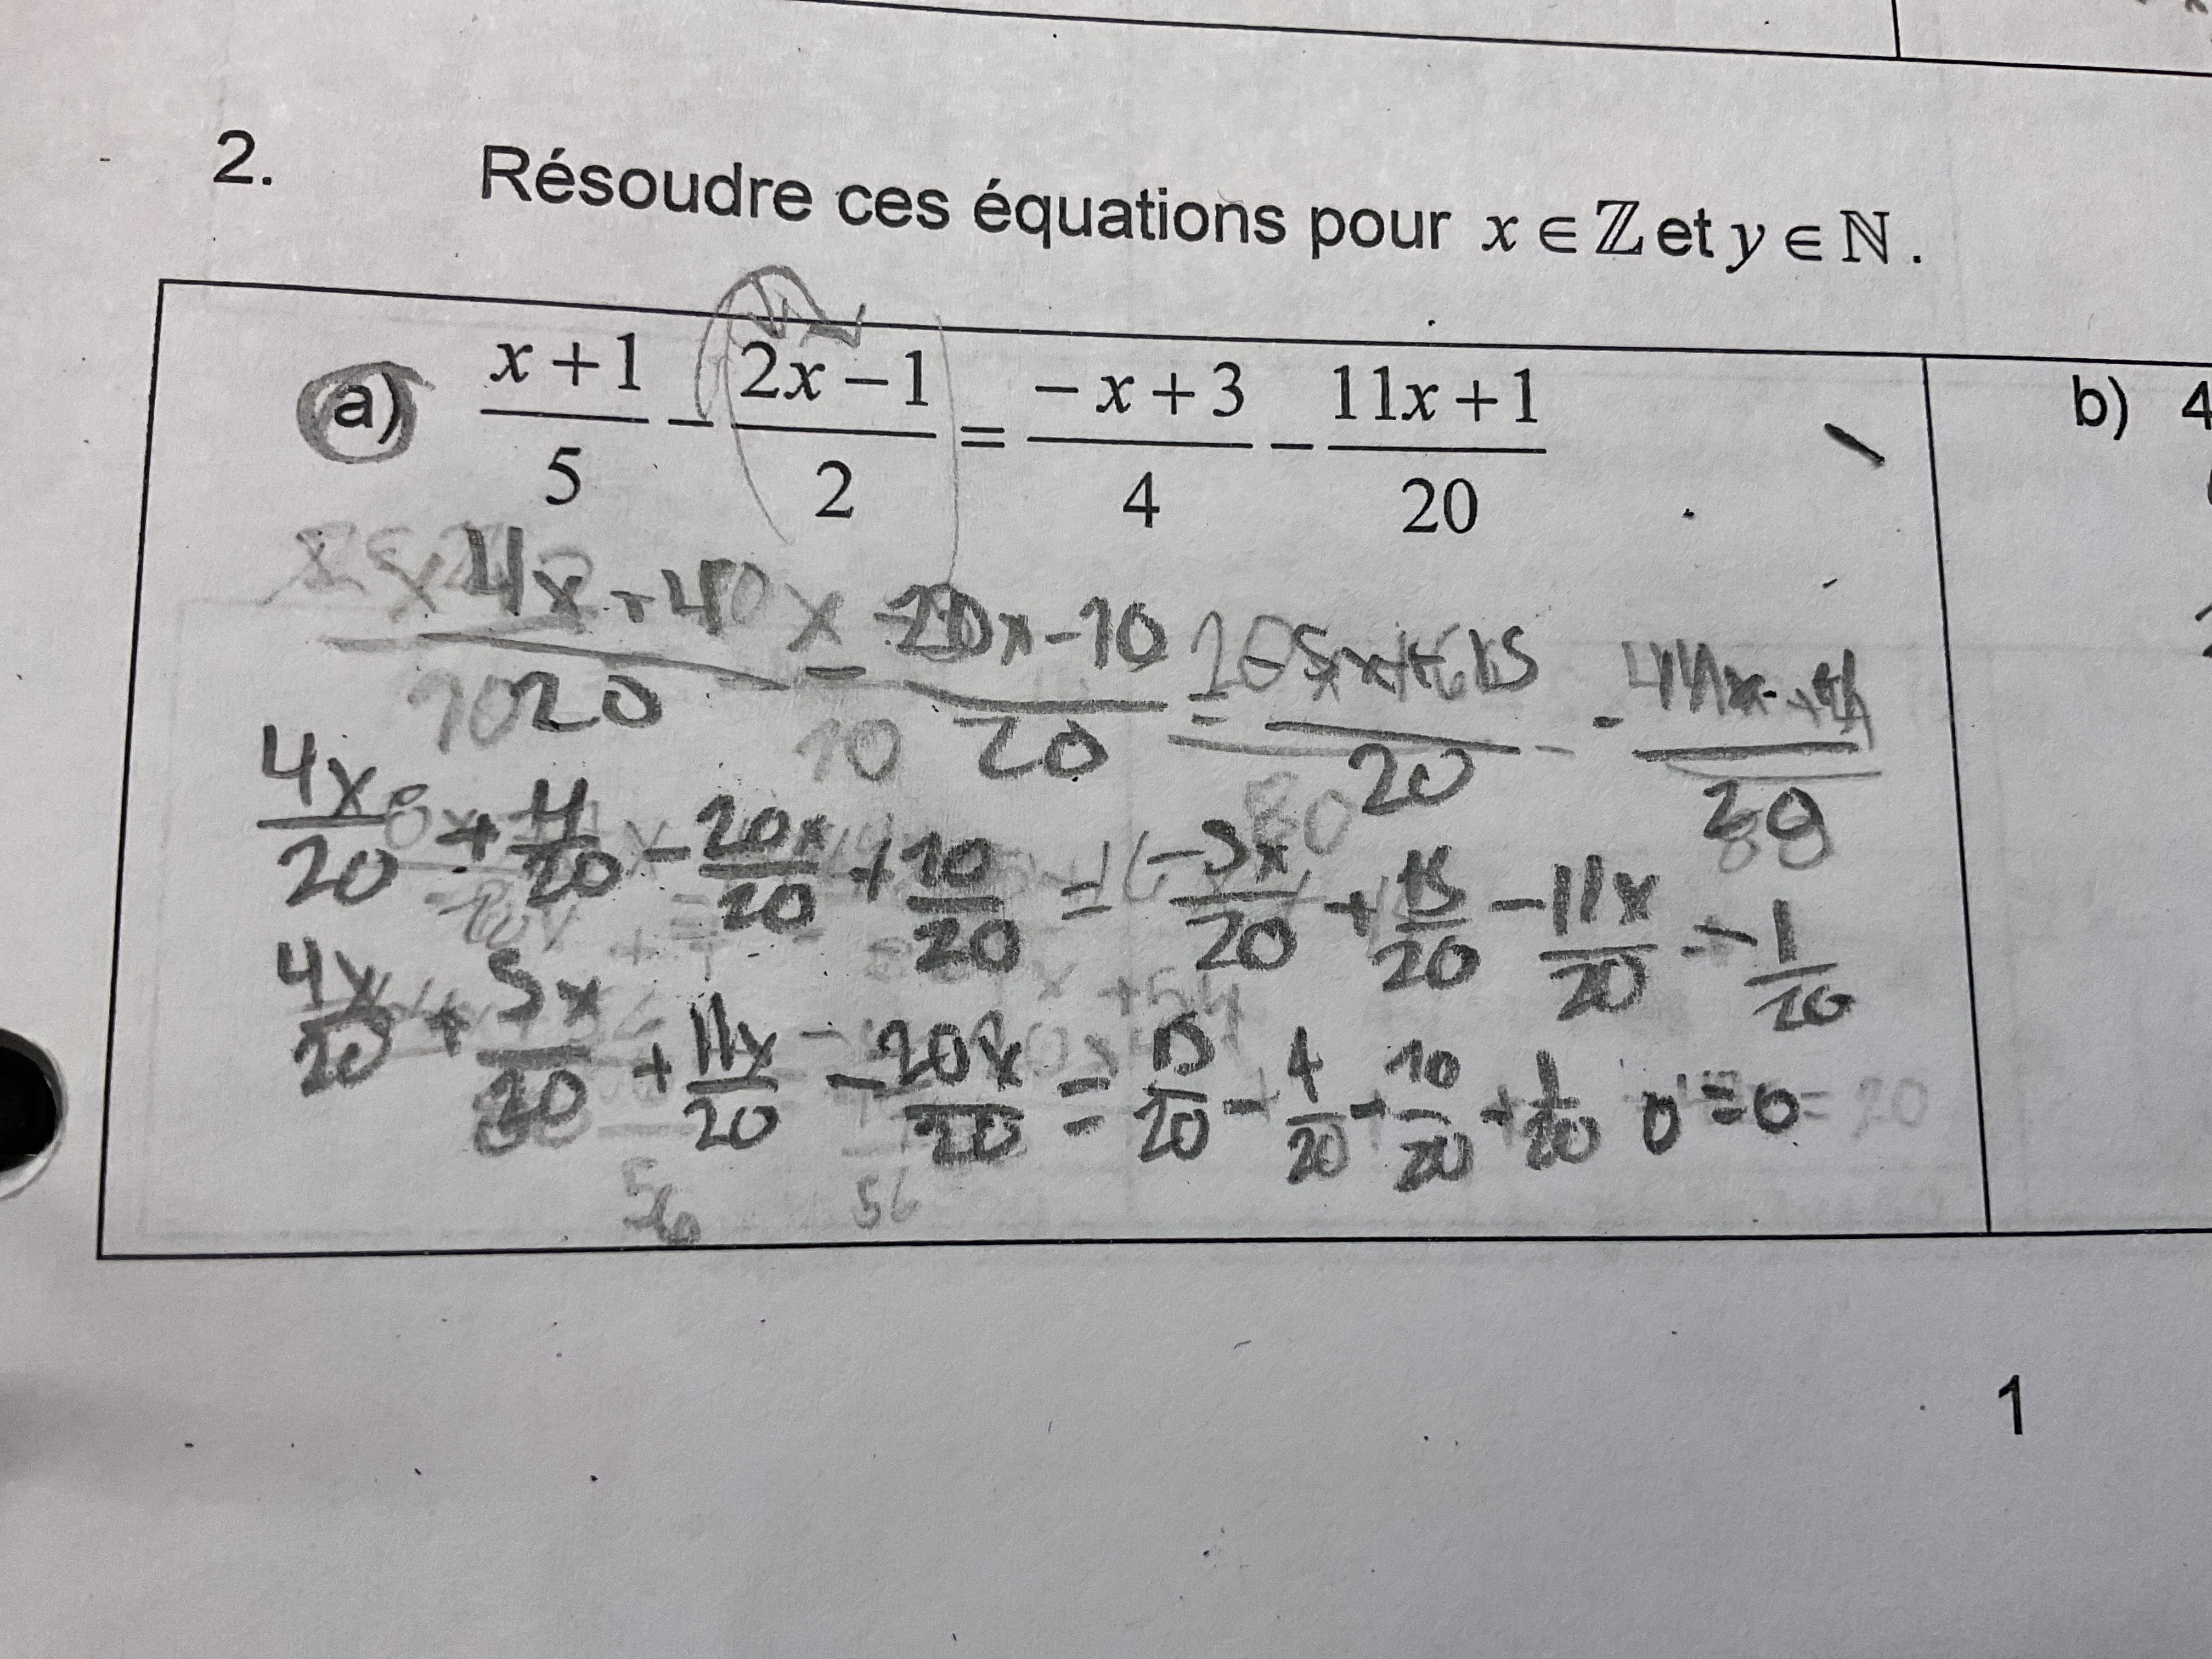 2. Résoudre ces équations pour x ∈ ℤ et y ∈ ℕ.
a) (x+1)/5 − (2x−1)/2 = (−x+3)/4 − (11x+1)/20
b) 4
(4x+4)/20 − (20x−10)/20 = (−5x+15)/20 − (11x+1)/20
4x/20 + 4/20 − 20x/20 + 10/20 = −5x/20 + 15/20 − 11x/20 − 1/20
4x/20 + 5x/20 + 11x/20 − 20x/20 = 15/20 − 4/20 − 10/20 − 1/20 0=0
1